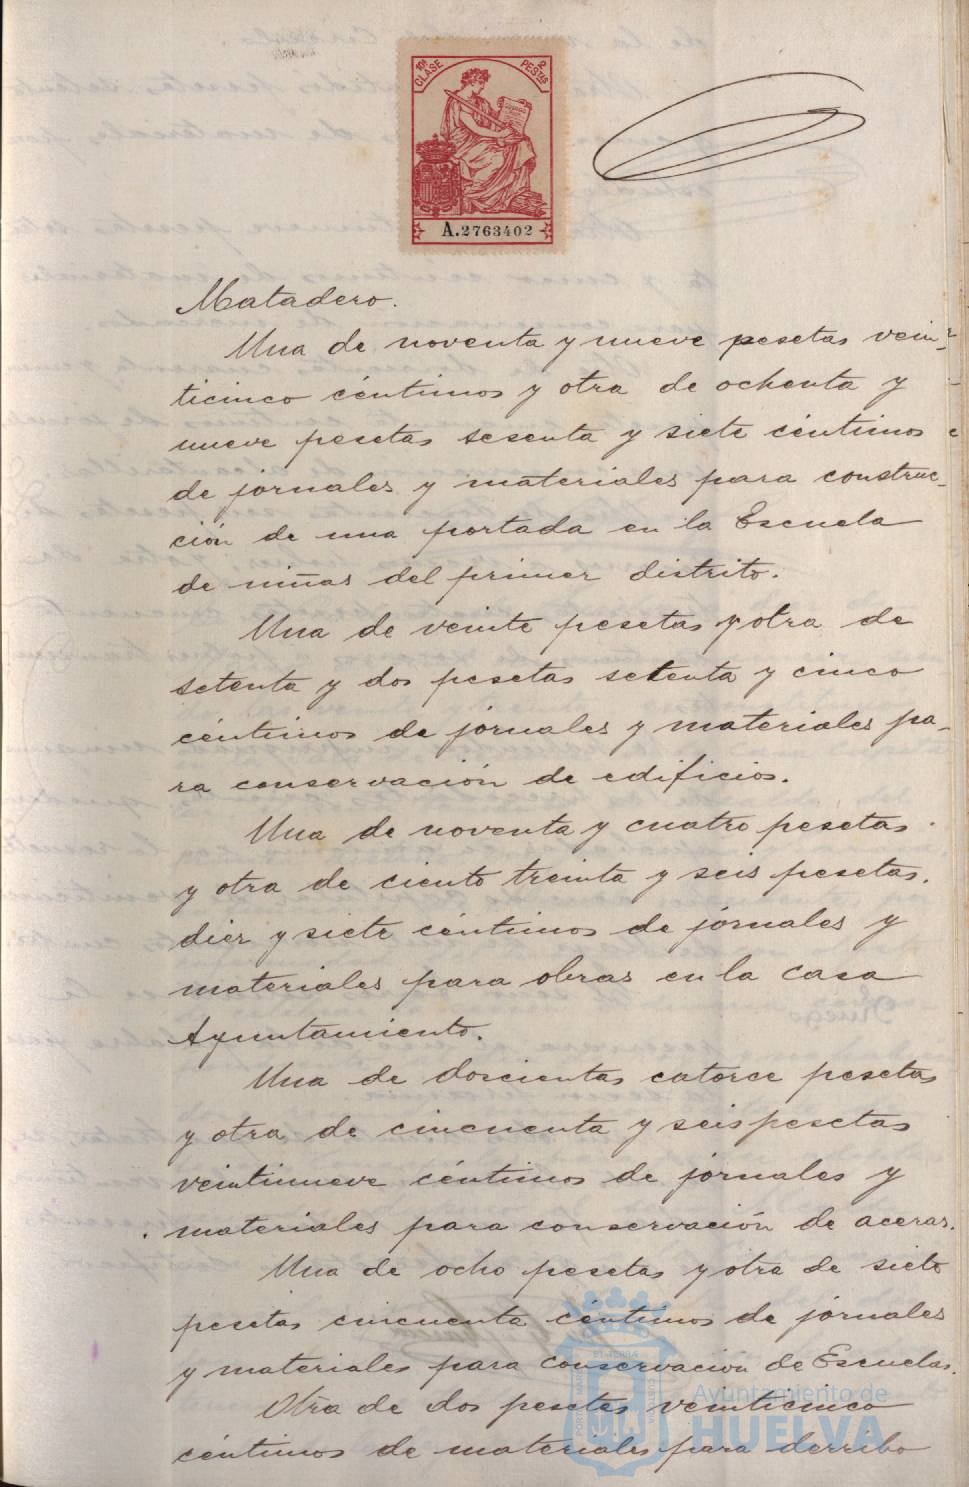 10ª CLASE 2 PESTAS
A.2763402
Matadero.
Una de noventa y nueve pesetas vein-
ticinco céntimos y otra de ochenta y
nueve pesetas sesenta y siete céntimos
de jornales y materiales para construc-
ción de una portada en la Escuela
de niñas del primer distrito.
Una de veinte pesetas y otra de
setenta y dos pesetas setenta y cinco
céntimos de jornales y materiales pa-
ra conservación de edificios.
Una de noventa y cuatro pesetas
y otra de ciento treinta y seis pesetas.
diez y siete céntimos de jornales y
materiales para obras en la casa
Ayuntamiento.
Una de doscientas catorce pesetas
y otra de cincuenta y seis pesetas
veintinueve céntimos de jornales y
materiales para conservación de aceras.
Una de ocho pesetas y otra de siete
pesetas cincuenta céntimos de jornales
y materiales para conservación de Escuelas.
Otra de dos pesetas veinticinco
céntimos de materiales para derribo
Ayuntamiento de
HUELVA